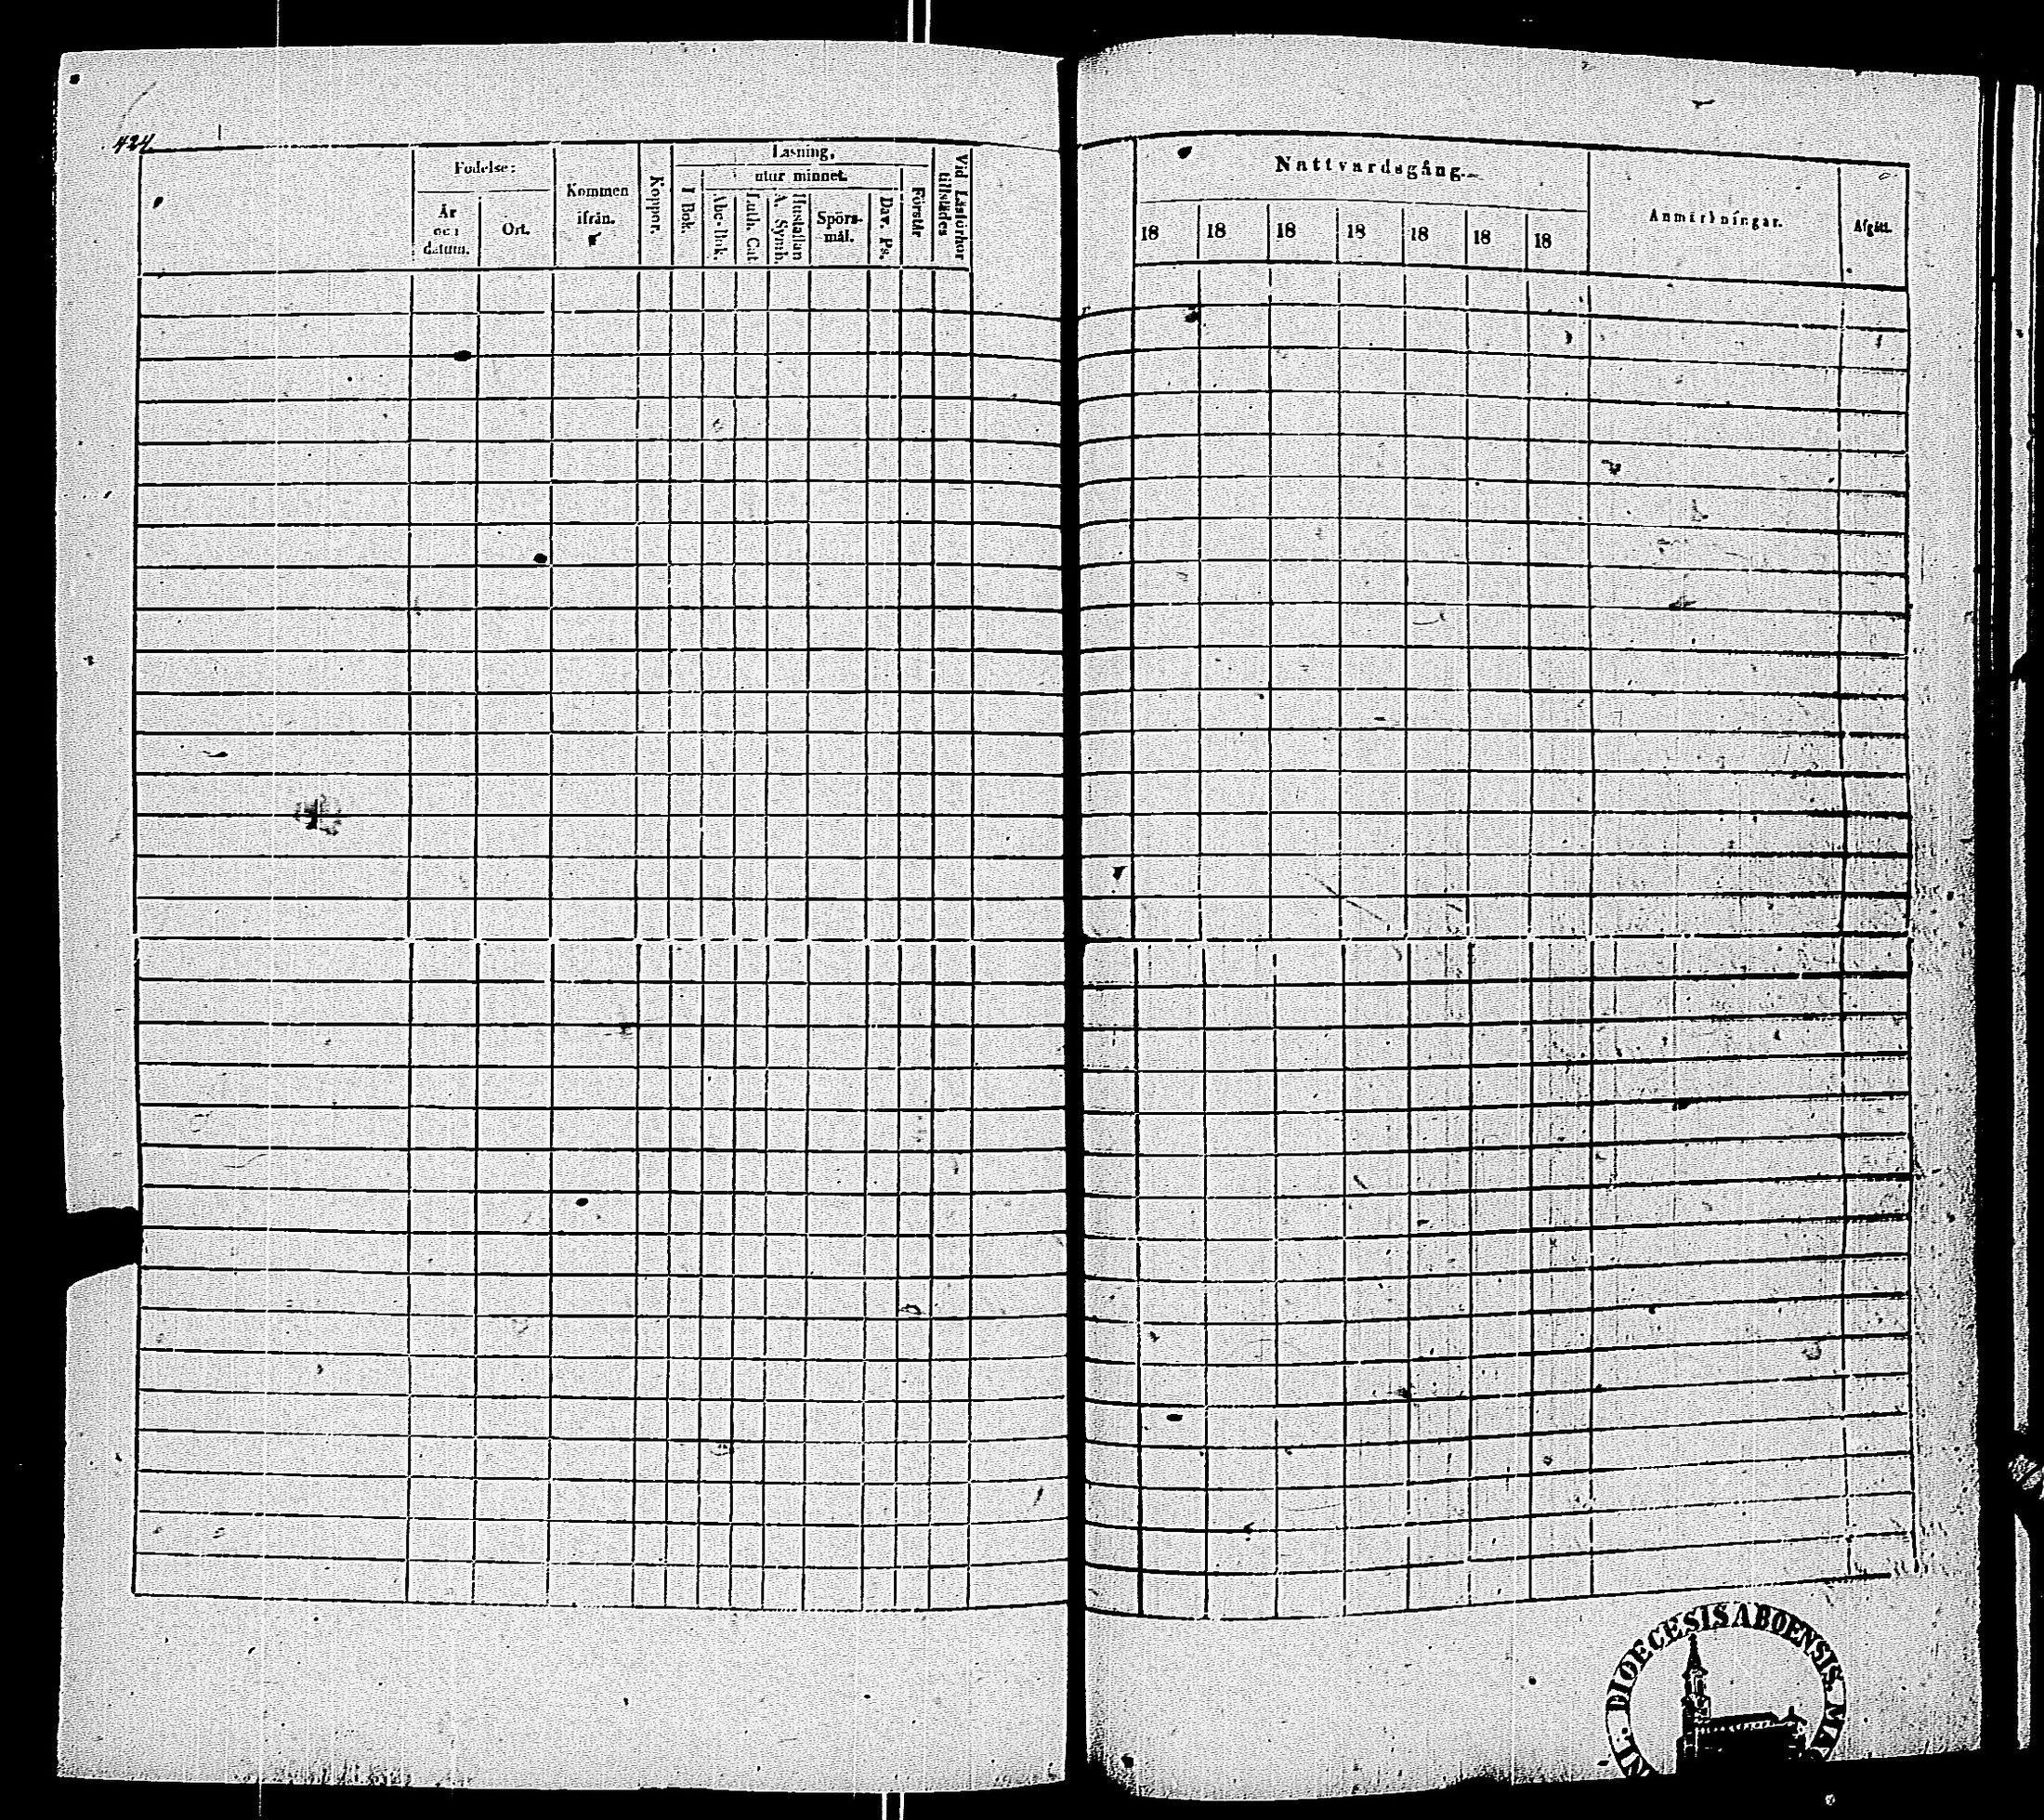 424
Födelse:
År och datum.
Ort.
Kommen ifrån.
Koppor.
Läsning,
utur minnet.
I Bok.
Abc-Bok.
Luth. Cat.
Hustaflan A. Symb.
Spörs-mål.
Dav. Ps.
Förstår
Vid Läsförhör tillstädes
Nattvardsgång.
18 18 18 18 18 18 18
Anmärkningar.
Afgått.
DIOECESIS ABOENSIS.